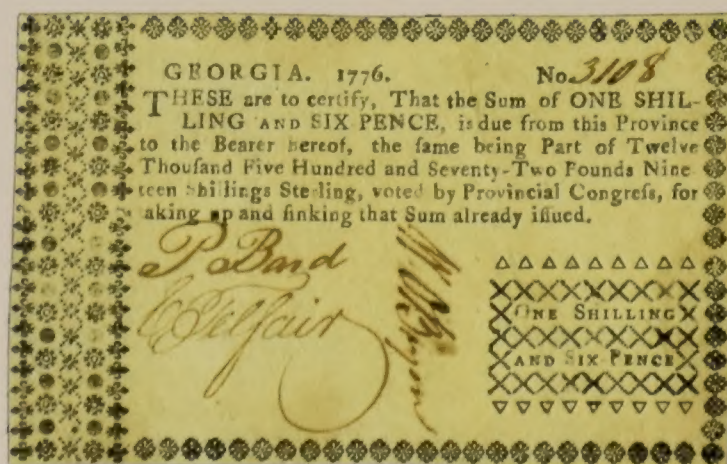 GEORGIA. 1776. No. 3108
THESE are to certify, That the Sum of ONE SHIL-
LING AND SIX PENCE, is due from this Province
to the Bearer hereof, the ſame being Part of Twelve
Thouſand Five Hundred and Seventy-Two Pounds Nine
teen Shillings Sterling, voted by Provincial Congreſs, for
taking up and ſinking that Sum already iſſued.
P Band
E Telfair
ONE SHILLING
AND SIX PENCE